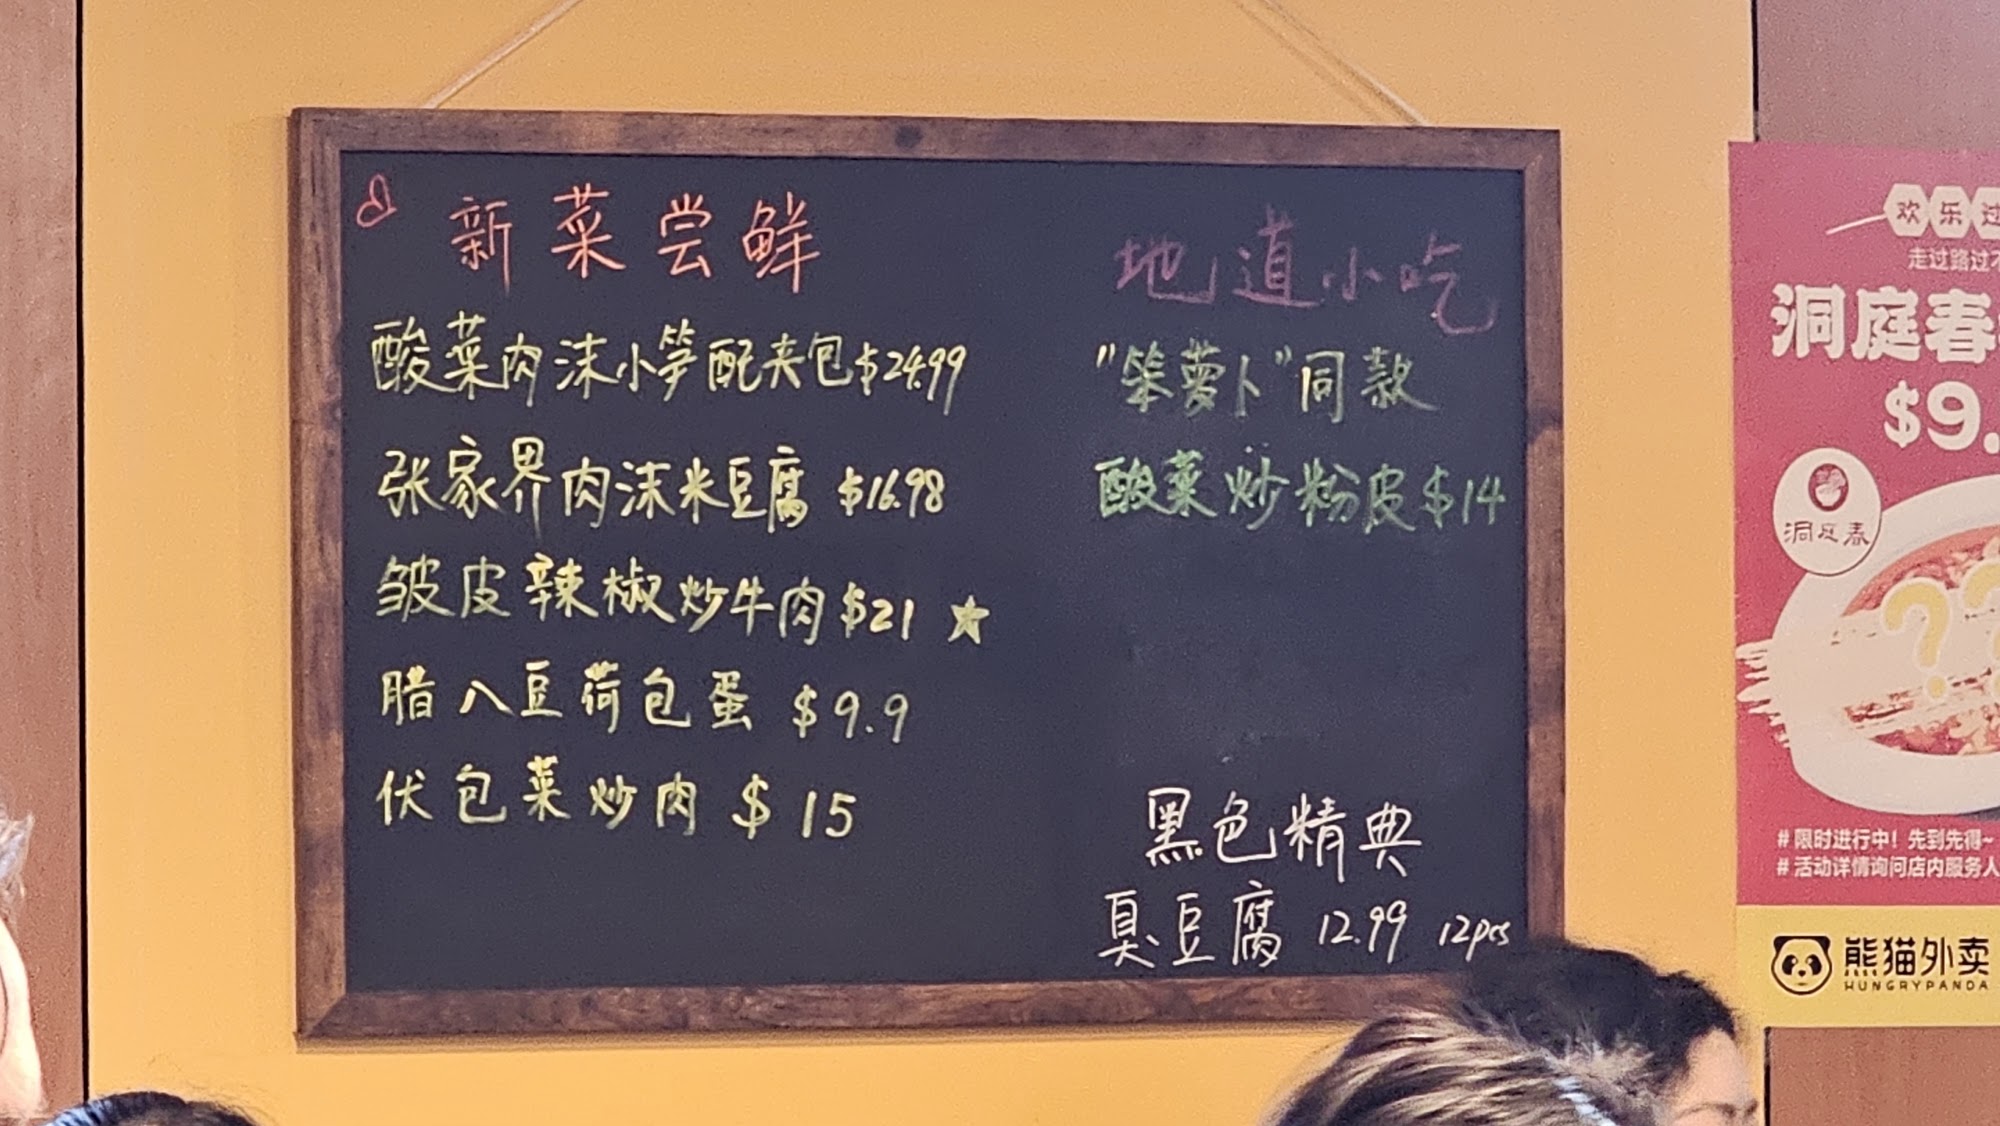 新菜尝鲜
酸菜肉沫小笋配夹包$24.99
张家界肉沫米豆腐 $16.98
皱皮辣椒炒牛肉$21 ★
腊八豆荷包蛋 $9.9
伏包菜炒肉 $15
地道小吃
"笨萝卜"同款
酸菜炒粉皮$14
黑色精典
臭豆腐 12.99 12pcs
欢乐过
走过路过不
洞庭春
$9.
洞庭春
??
#限时进行中！先到先得~
#活动详情询问店内服务人
熊猫外卖
HUNGRYPANDA